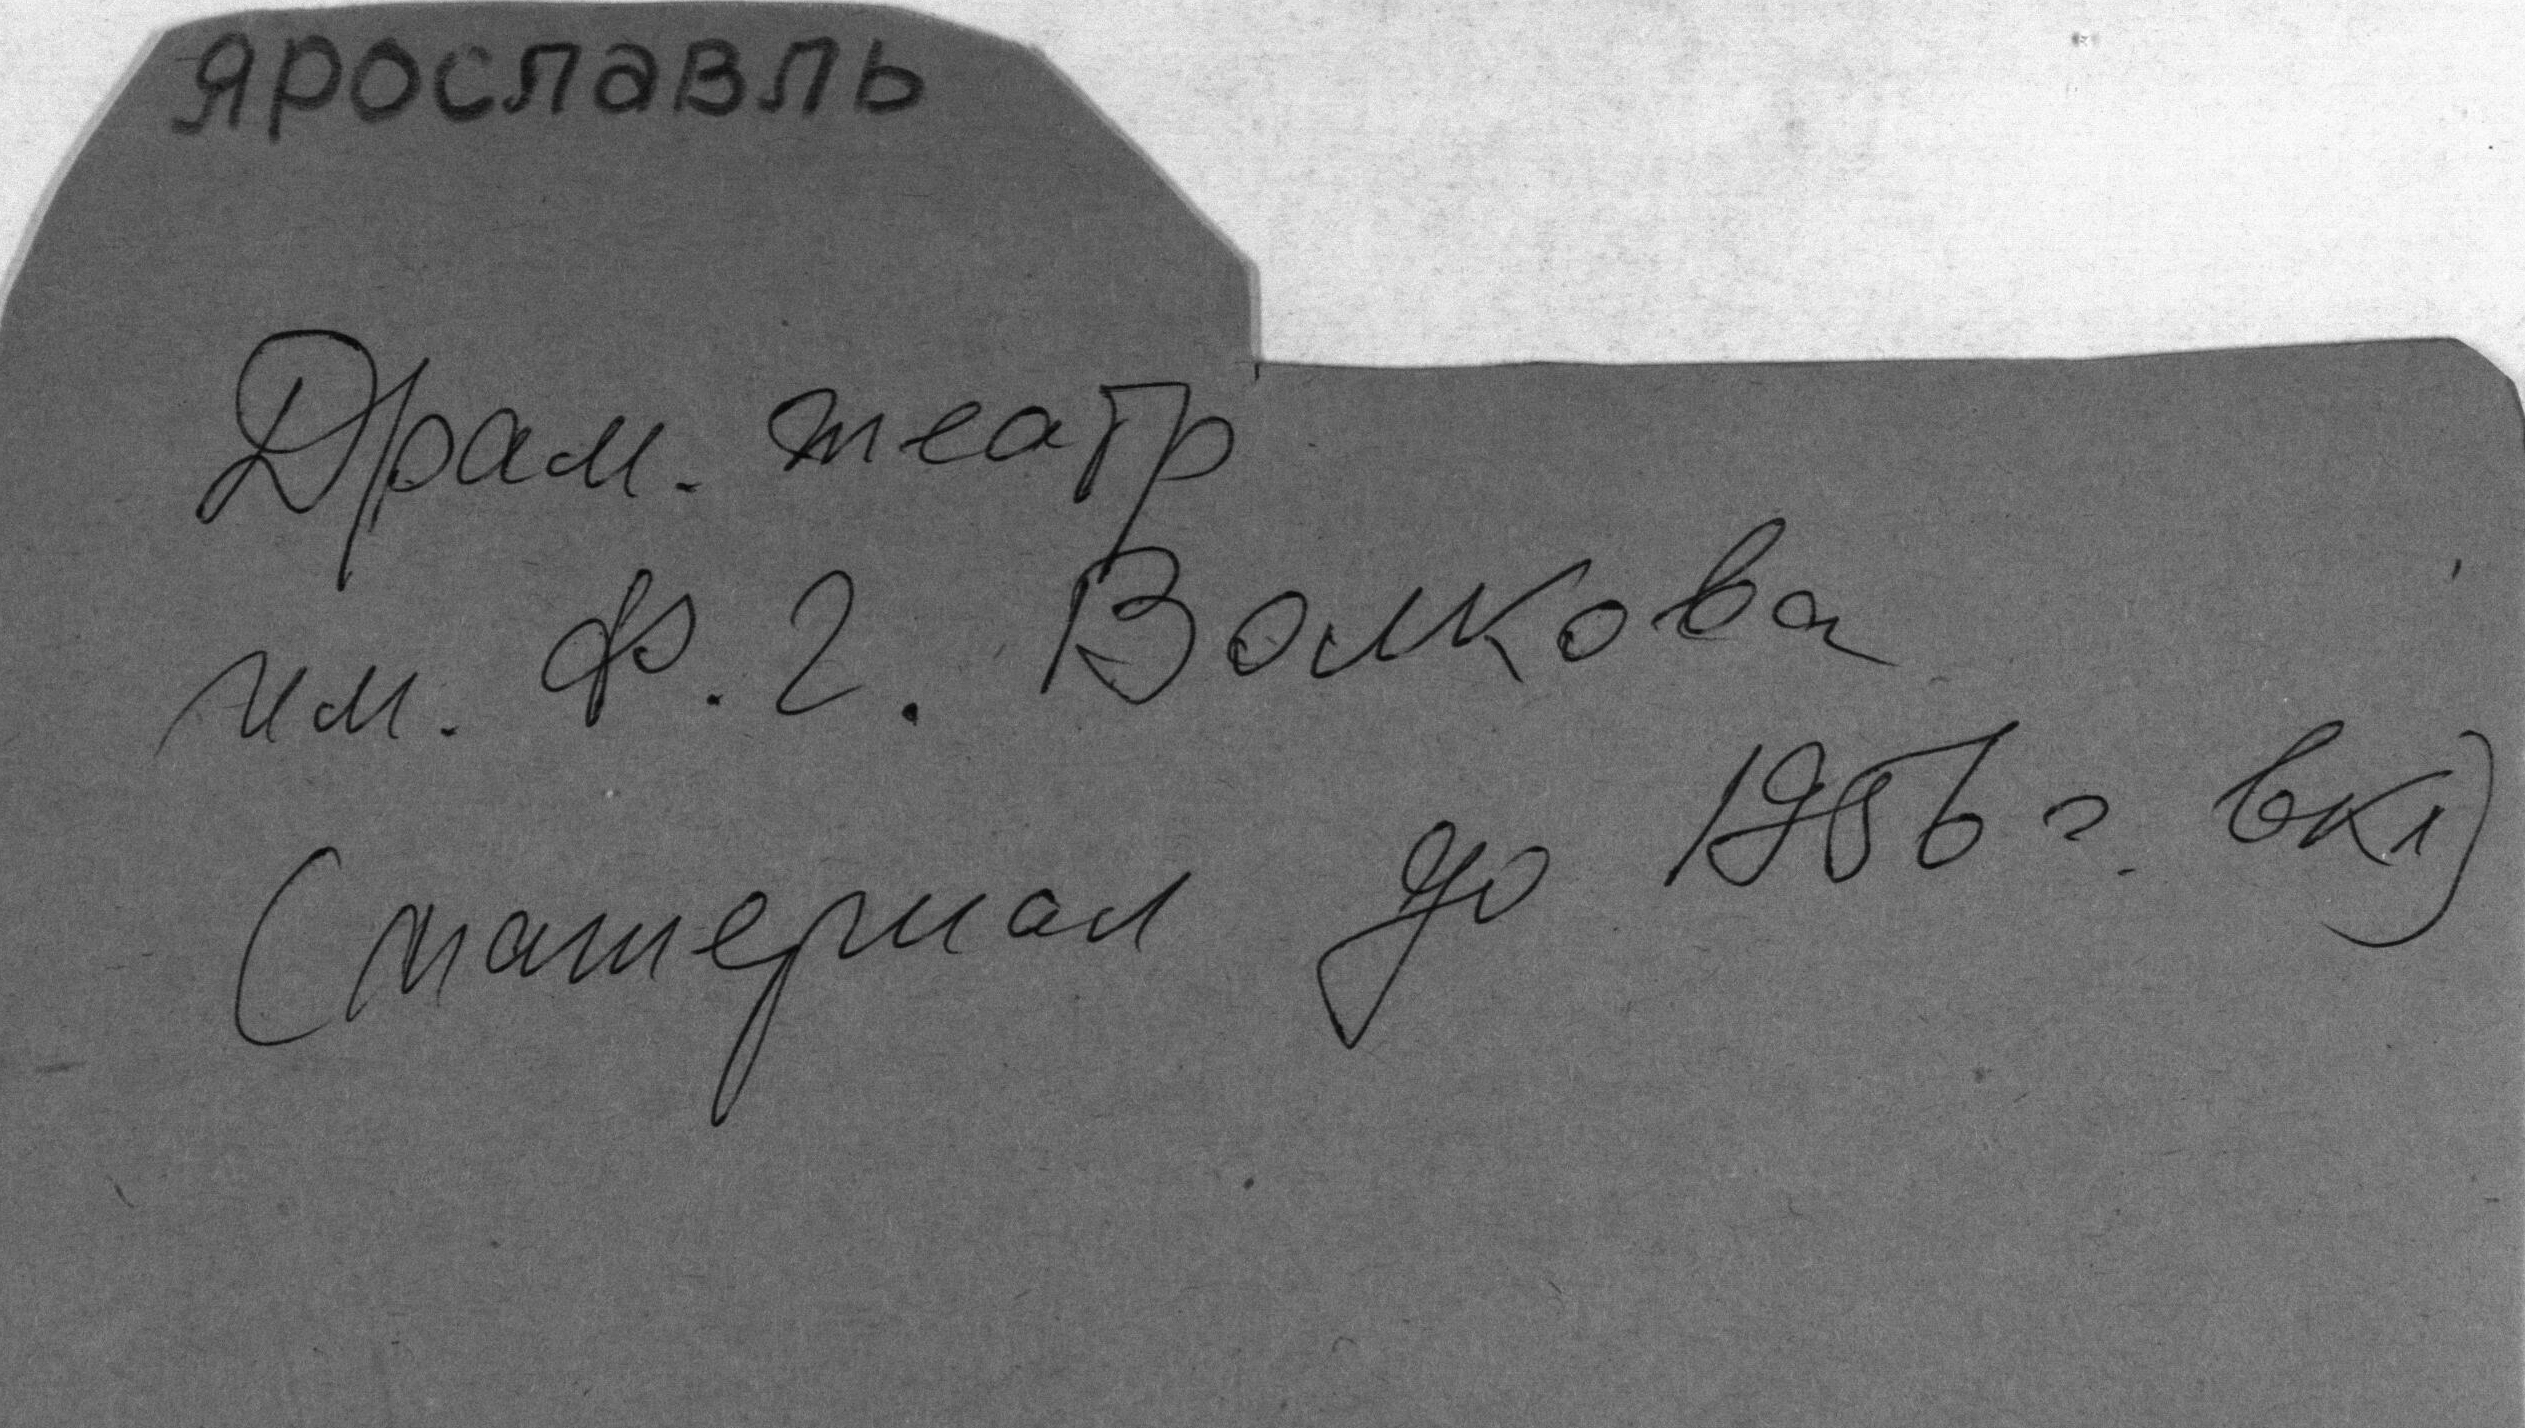 ярославль
Драм. театр
им. Ф. Г. Волкова
(материал до 1956 г. вкл)